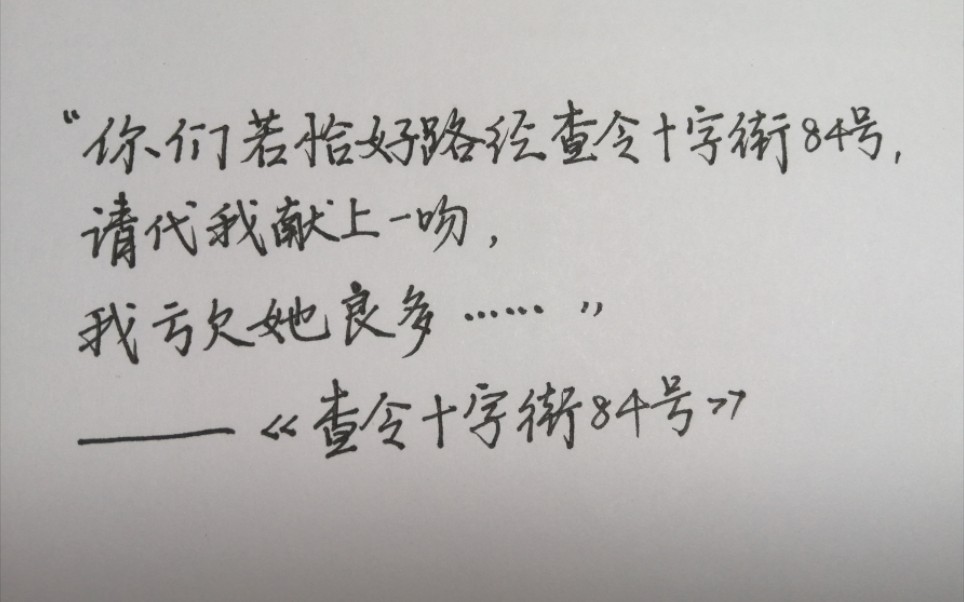 “你们若恰好路经查令十字街84号，
请代我献上一吻，
我亏欠她良多……”
——《查令十字街84号》